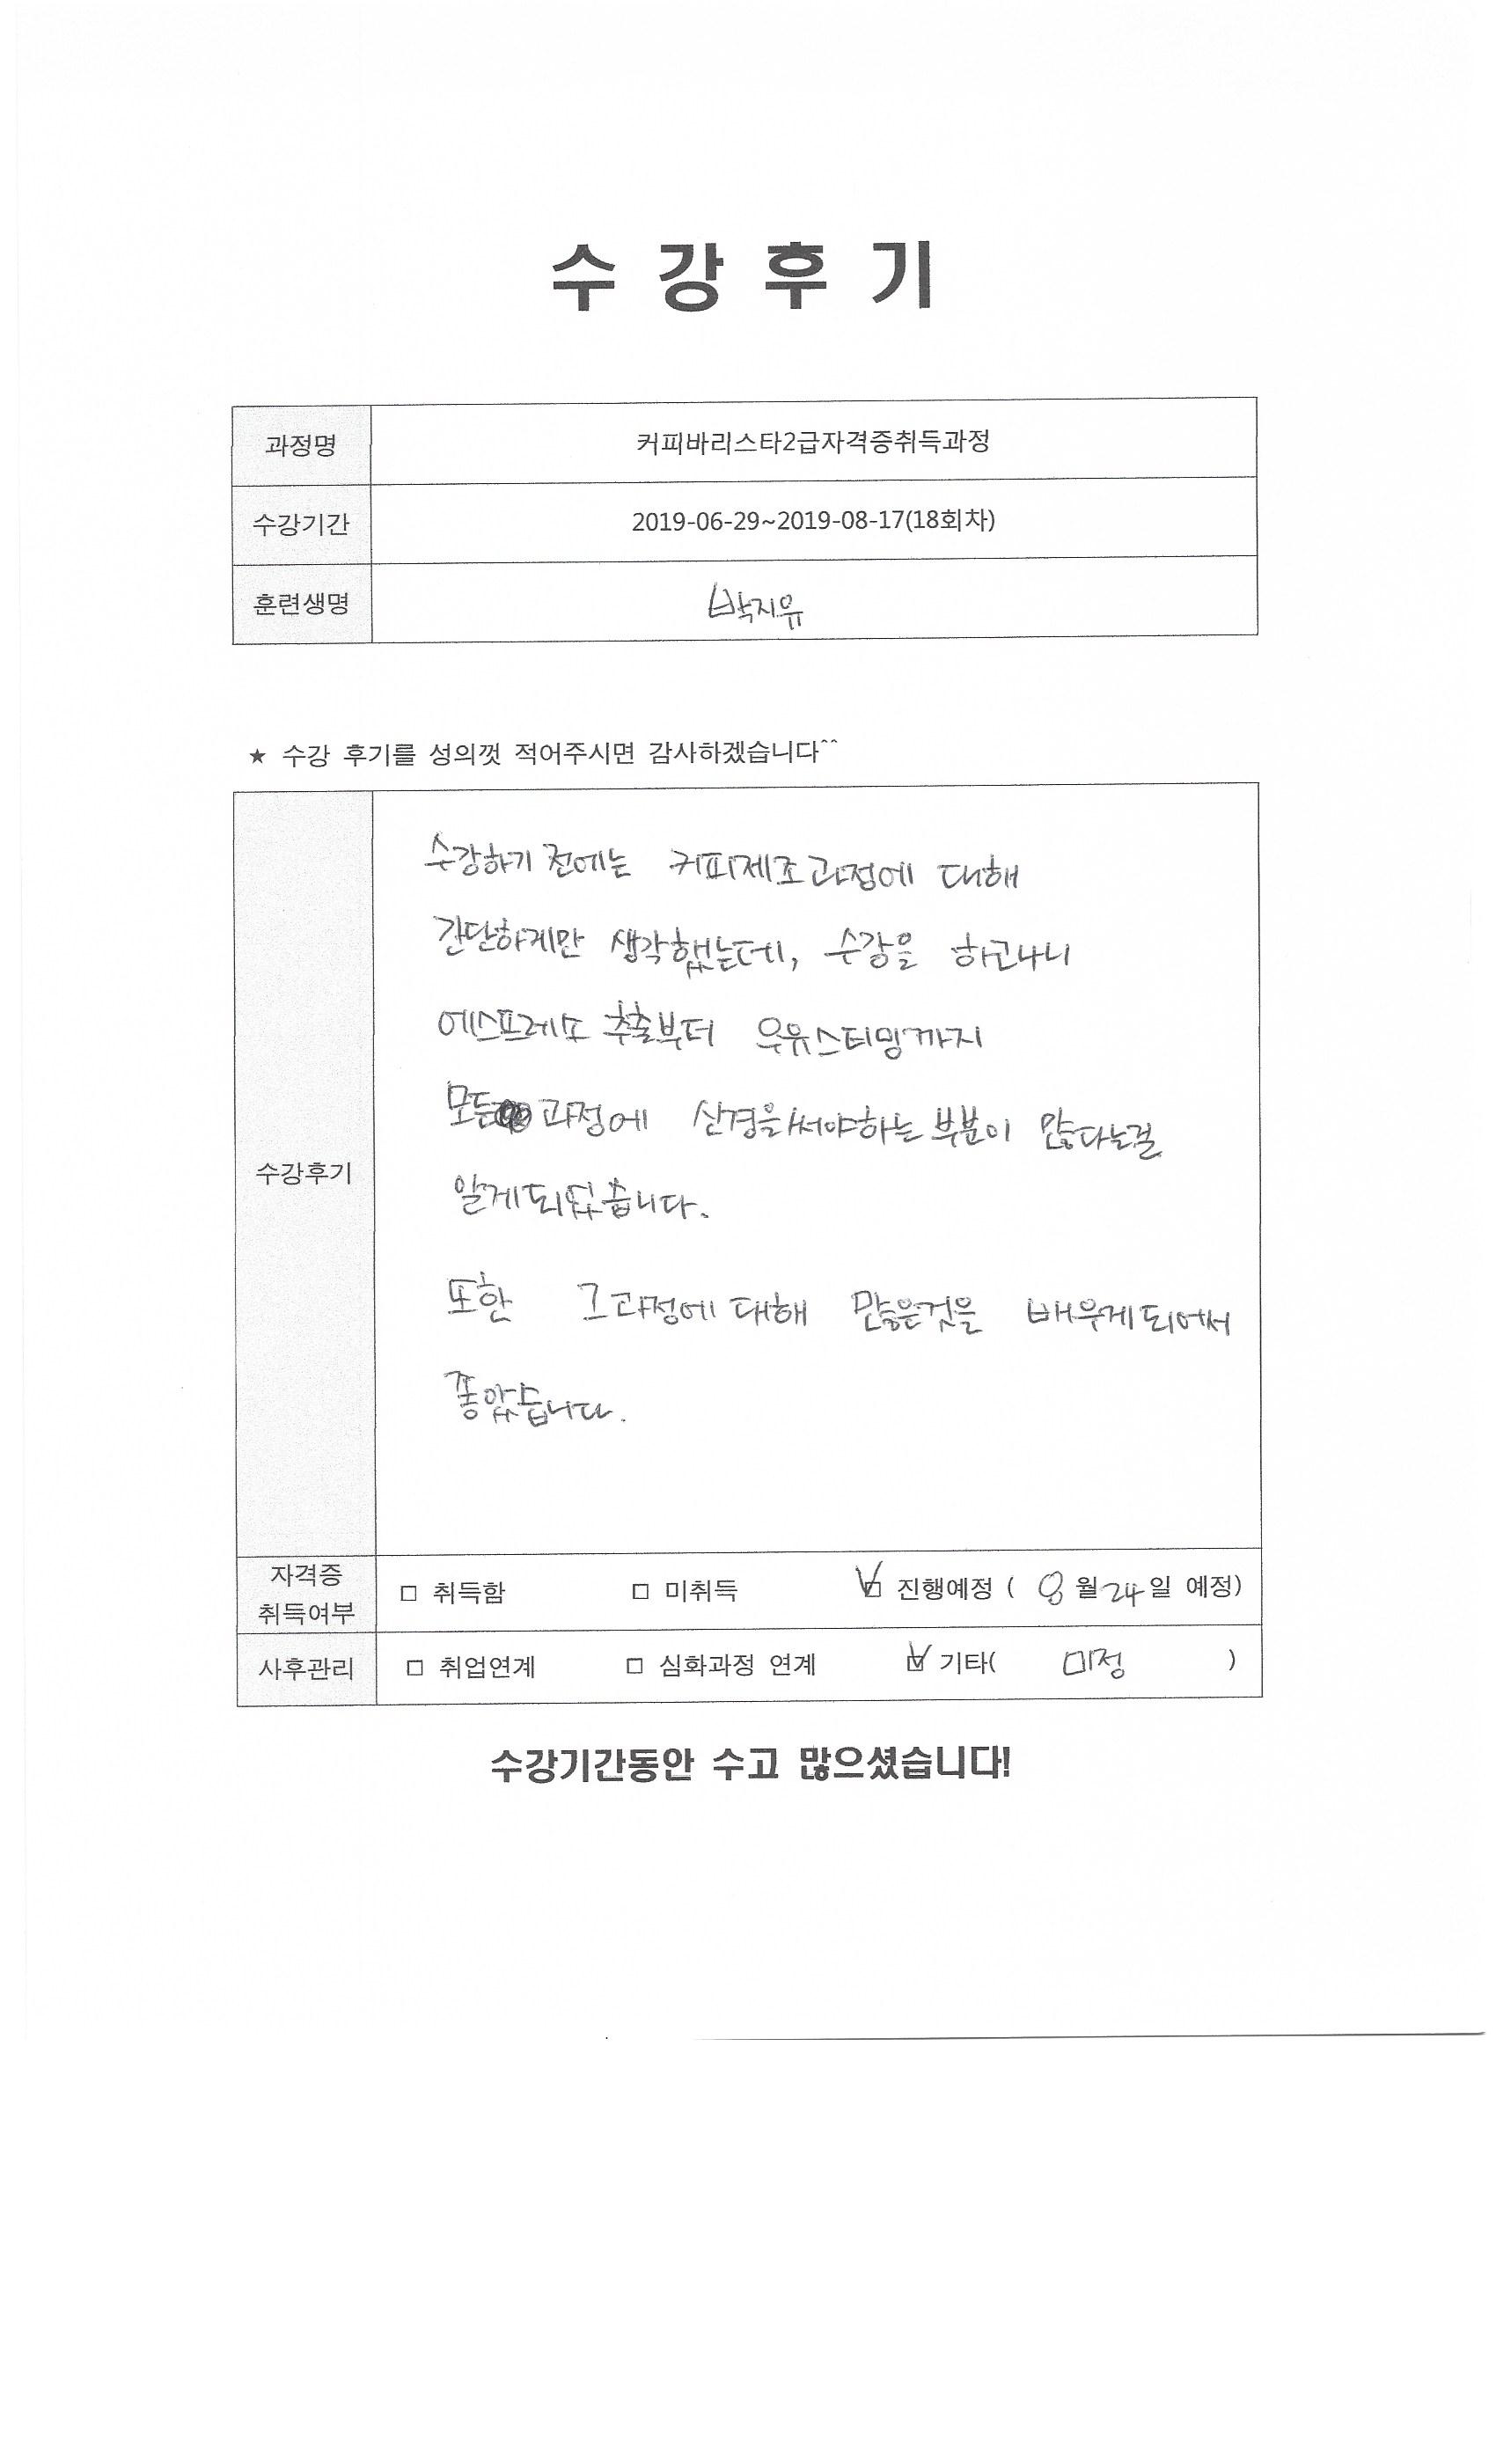 수강후기
과정명 커피바리스타2급자격증취득과정
수강기간 2019-06-29~2019-08-17(18회차)
훈련생명 박지유
★ 수강 후기를 성의껏 적어주시면 감사하겠습니다^^
수강후기
수강하기 전에는 커피제조과정에 대해
간단하게만 생각했는데, 수강을 하고나니
에스프레소 추출부터 우유스티밍까지
모든 과정에 신경을써야하는 부분이 많다는걸
알게되었습니다.
또한 그과정에 대해 많은것을 배우게되어서
좋았습니다.
자격증
취득여부 □ 취득함 □ 미취득 ☑ 진행예정 ( 8월 24일 예정)
사후관리 □ 취업연계 □ 심화과정 연계 ☑ 기타( 미정 )
수강기간동안 수고 많으셨습니다!